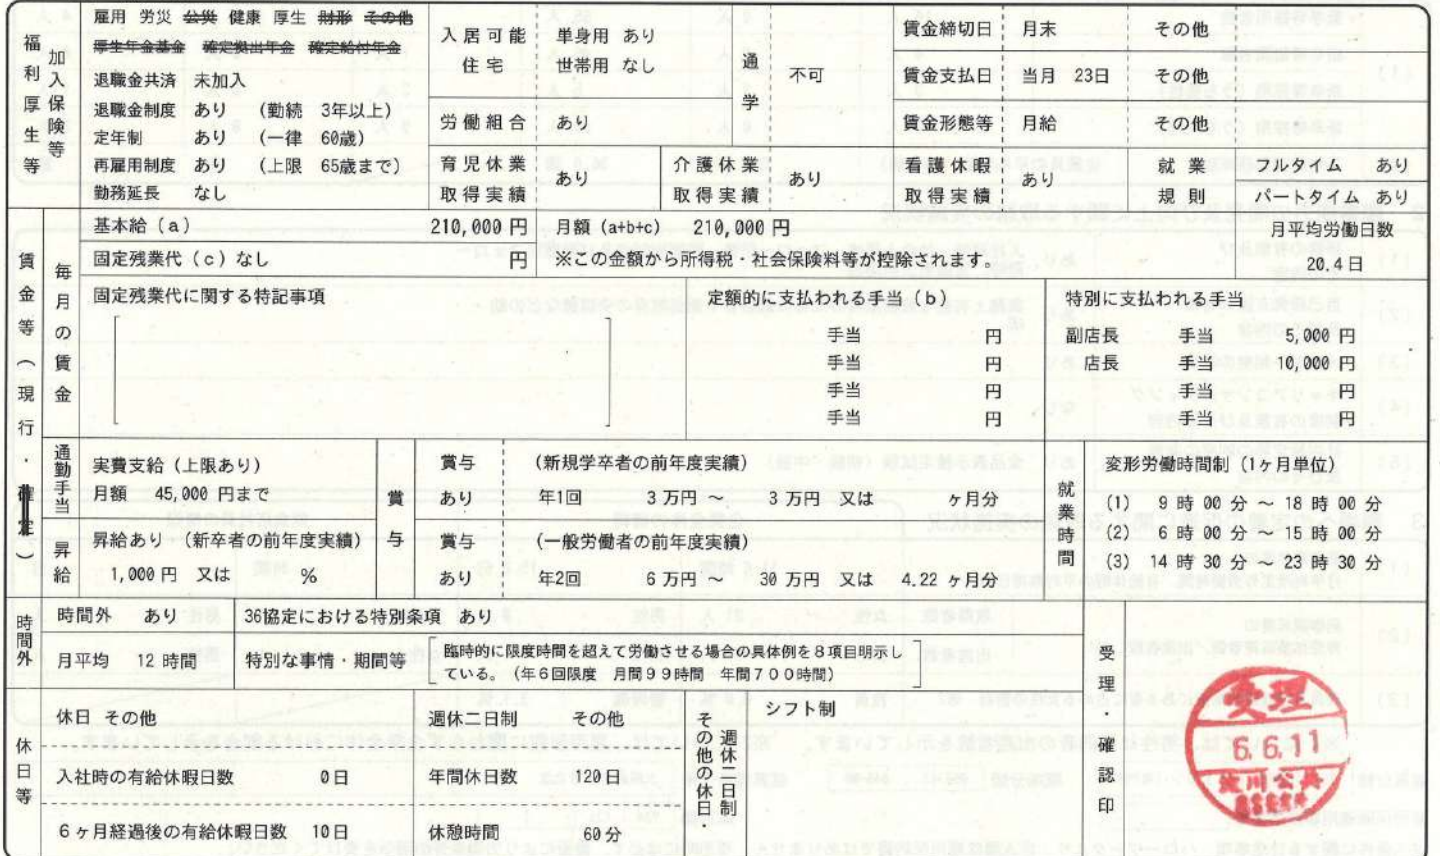 福利厚生等
加入保険等
雇用 労災 公災 健康 厚生 財形 その他
厚生年金基金 確定拠出年金 確定給付年金
退職金共済 未加入
退職金制度 あり (勤続 3年以上)
定年制 あり (一律 60歳)
再雇用制度 あり (上限 65歳まで)
勤務延長 なし
入居可能住宅
単身用 あり
世帯用 なし
労働組合 あり
育児休業取得実績 あり
介護休業取得実績 あり
通学 不可
賃金締切日 月末 その他
賃金支払日 当月 23日 その他
賃金形態等 月給 その他
看護休暇取得実績 あり
就業規則
フルタイム あり
パートタイム あり
賃金等(現行・確定)
毎月の賃金
基本給(a) 210,000 円 月額 (a+b+c) 210,000 円
固定残業代(c)なし 円 ※この金額から所得税・社会保険料等が控除されます。
月平均労働日数
20.4日
固定残業代に関する特記事項
定額的に支払われる手当(b)
手当 円
手当 円
手当 円
手当 円
特別に支払われる手当
副店長 手当 5,000 円
店長 手当 10,000 円
手当 円
手当 円
通勤手当
実費支給(上限あり)
月額 45,000 円まで
昇給
昇給あり (新卒者の前年度実績)
1,000 円 又は %
賞与
賞与 (新規学卒者の前年度実績)
あり 年1回 3 万円 ~ 3 万円 又は ヶ月分
賞与 (一般労働者の前年度実績)
あり 年2回 6 万円 ~ 30 万円 又は 4.22 ヶ月分
就業時間
変形労働時間制 (1ヶ月単位)
(1) 9 時 00 分 ~ 18 時 00 分
(2) 6 時 00 分 ~ 15 時 00 分
(3) 14 時 30 分 ~ 23 時 30 分
時間外
時間外 あり 36協定における特別条項 あり
月平均 12 時間 特別な事情・期間等
臨時的に限度時間を超えて労働させる場合の具体例を8項目明示し
ている。(年6回限度 月間99時間 年間700時間)
休日等
休日 その他
入社時の有給休暇日数 0日
6ヶ月経過後の有給休暇日数 10日
週休二日制 その他
年間休日数 120日
休憩時間 60分
週休二日制
その他の休日・
シフト制
受理・確認印
受理
6.6.11